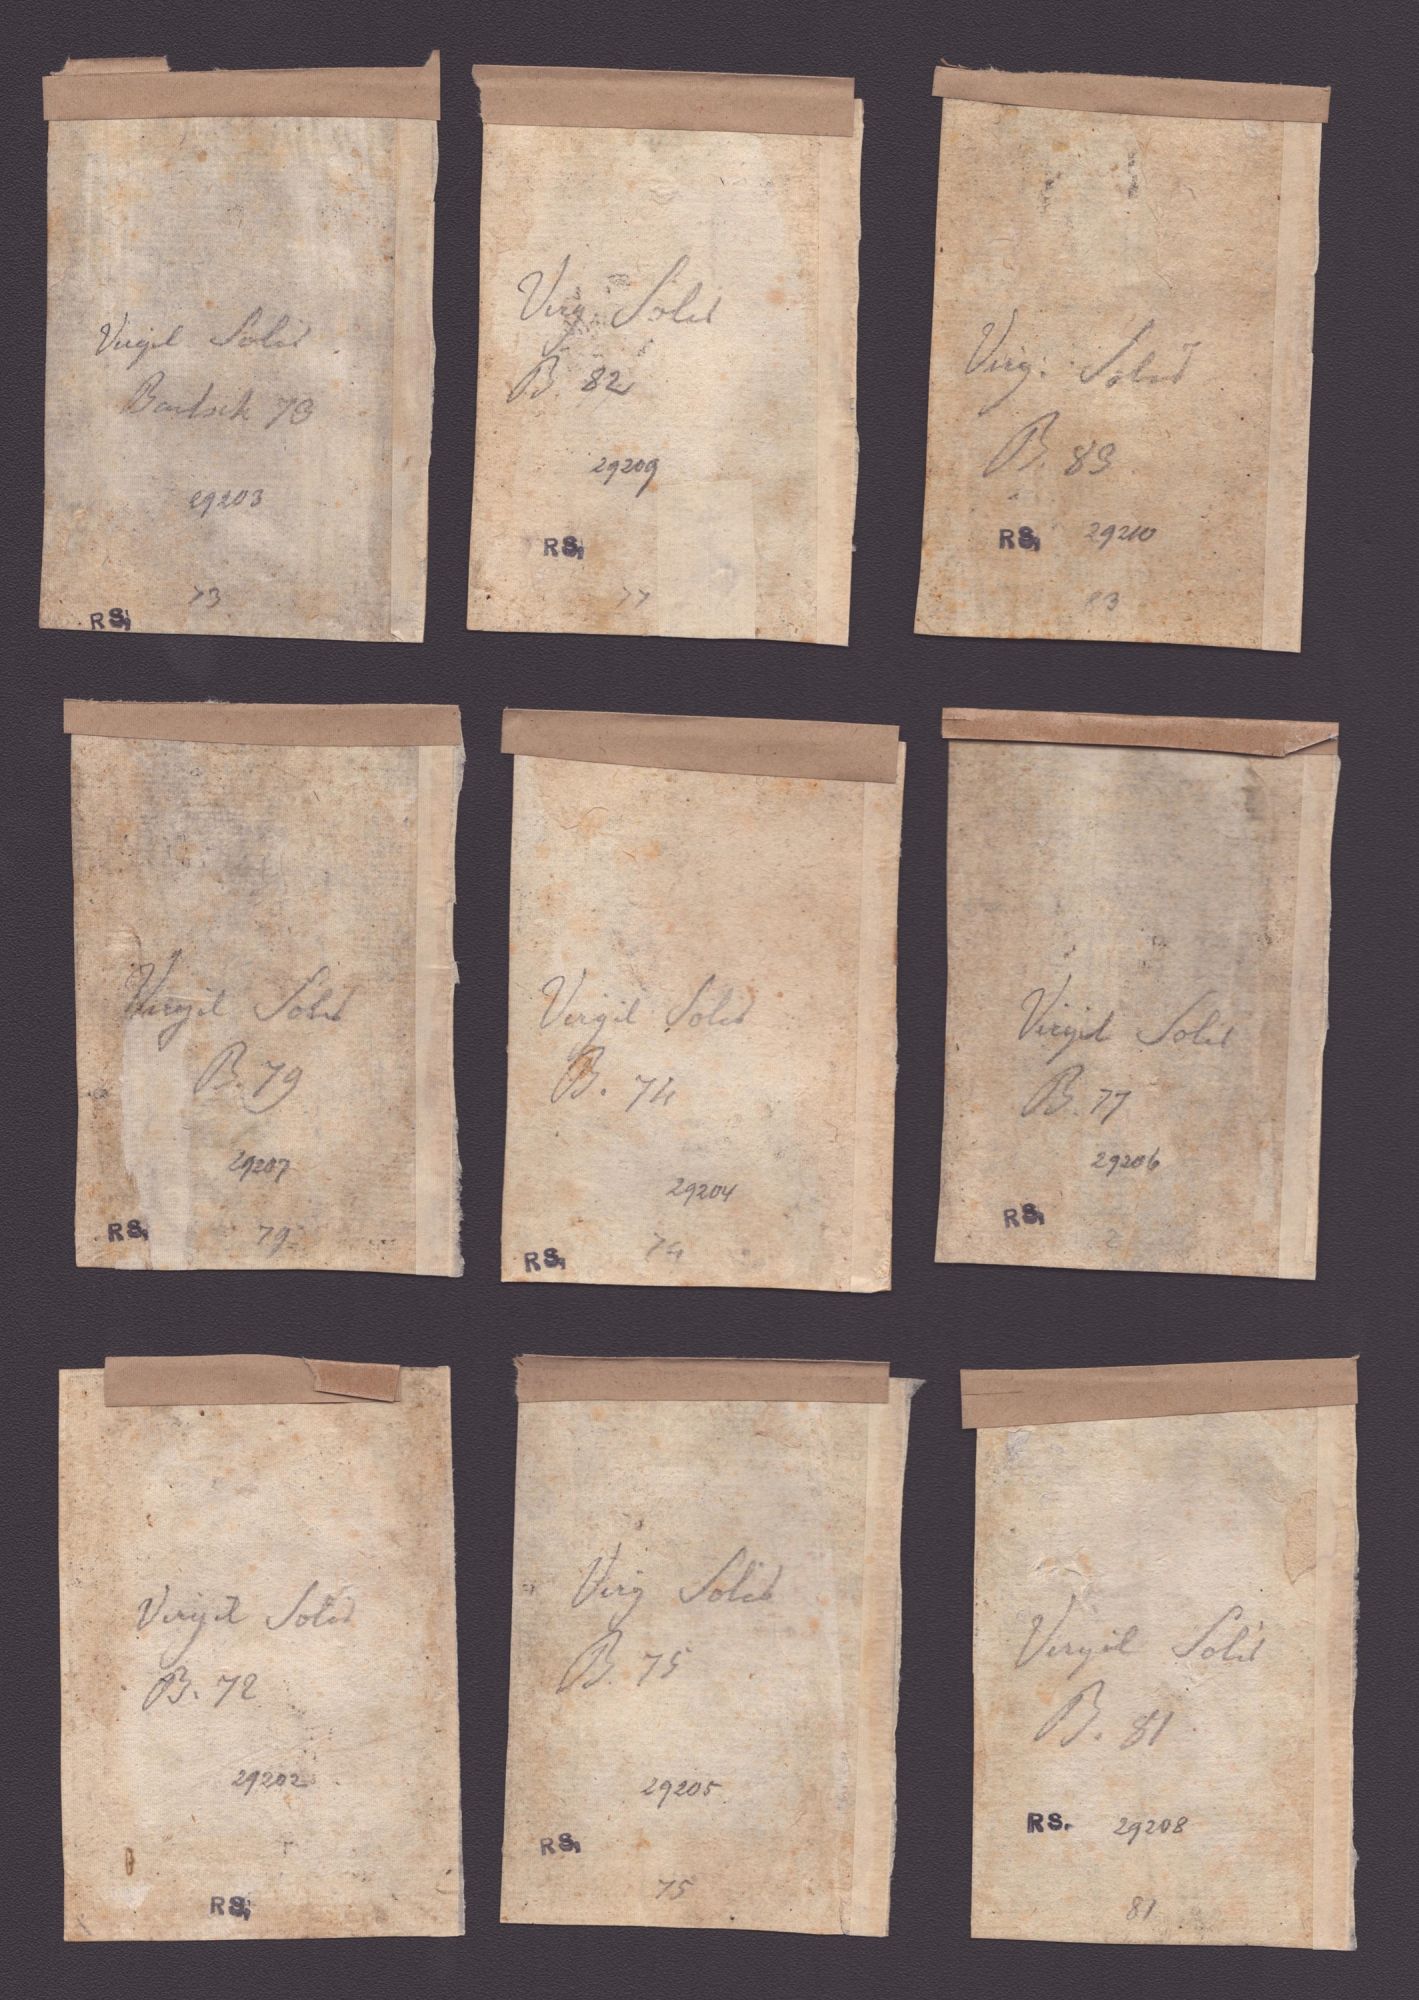 Virgil Solis
Bartsch 73
29203
73
RS,
Virg. Solis
B. 82
29209
RS,
77
Virg. Solis
B. 83
RS, 29210
83
Virgil Solis
B. 79
29207
RS, 79
Virgil Solis
B. 74
29204
RS, 74
Virgil Solis
B. 77
29206
RS,
Virgil Solis
B. 72
29202
RS,
Virg Solis
B. 75
29205
RS,
75
Virgil Solis
B. 81
RS. 29208
81